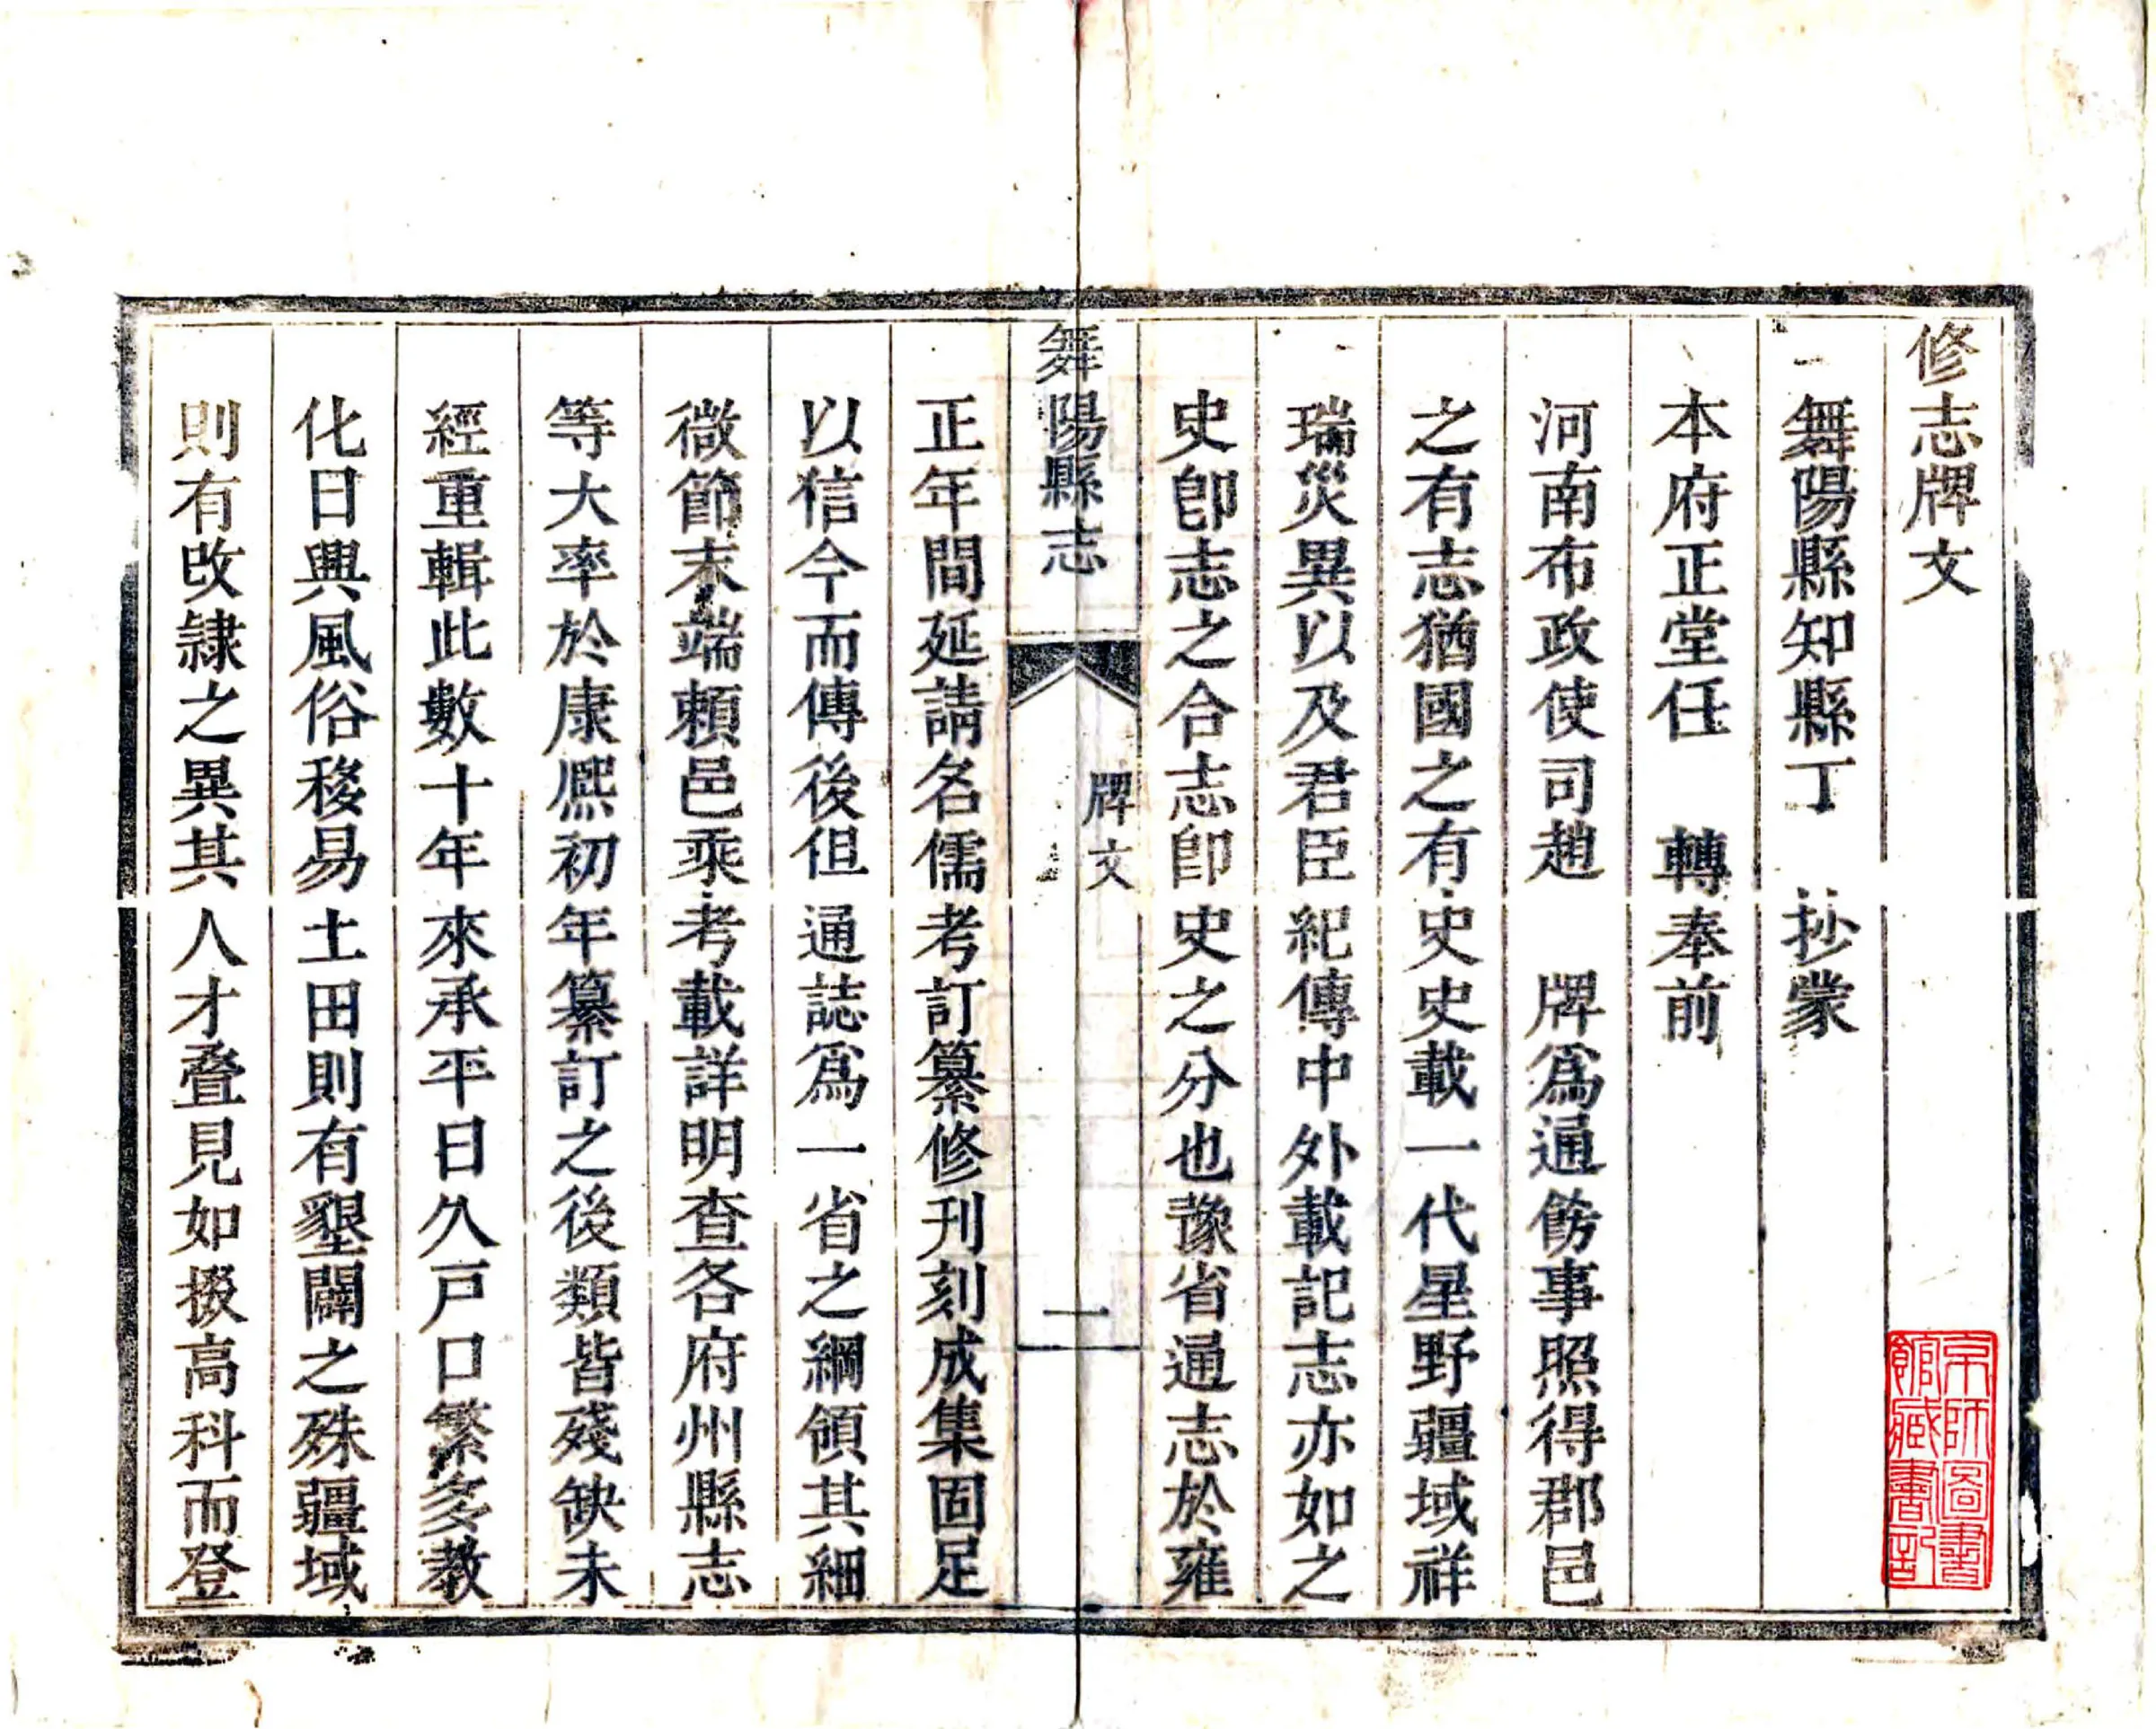 修志牌文
舞陽縣知縣丁　抄蒙
本府正堂任　轉奉前
河南布政使司趙　牌爲通飭事照得郡邑
之有志猶國之有史史載一代星野疆域祥
瑞災異以及君臣紀傳中外載記志亦如之
史卽志之合志卽史之分也豫省通志於雍
舞陽縣志
牌文
一
正年間延請名儒考訂纂修刊刻成集固足
以信今而傳後但通誌爲一省之綱領其細
微節末端賴邑乘考載詳明查各府州縣志
等大率於康熙初年纂訂之後類皆殘缺未
經重輯此數十年來承平日久戸口繁多教
化日興風俗移易土田則有墾闢之殊疆域
則有改隷之異其人才叠見如掇高科而登
京師圖書
館藏書記